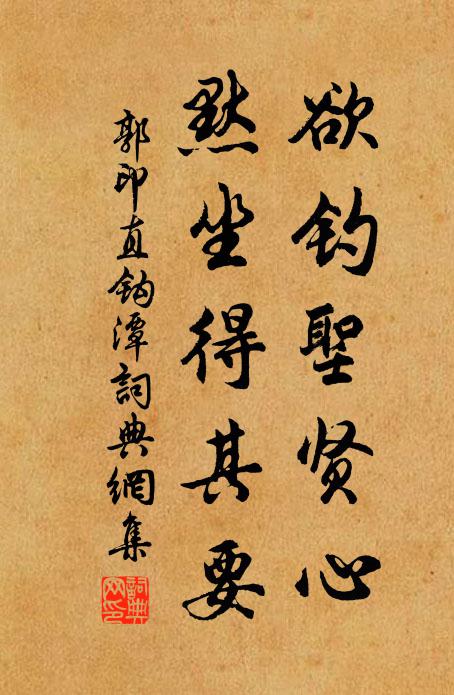 欲钓聖贤心
默坐得其要
郭印直鈎潭詞典網集
詞典网印